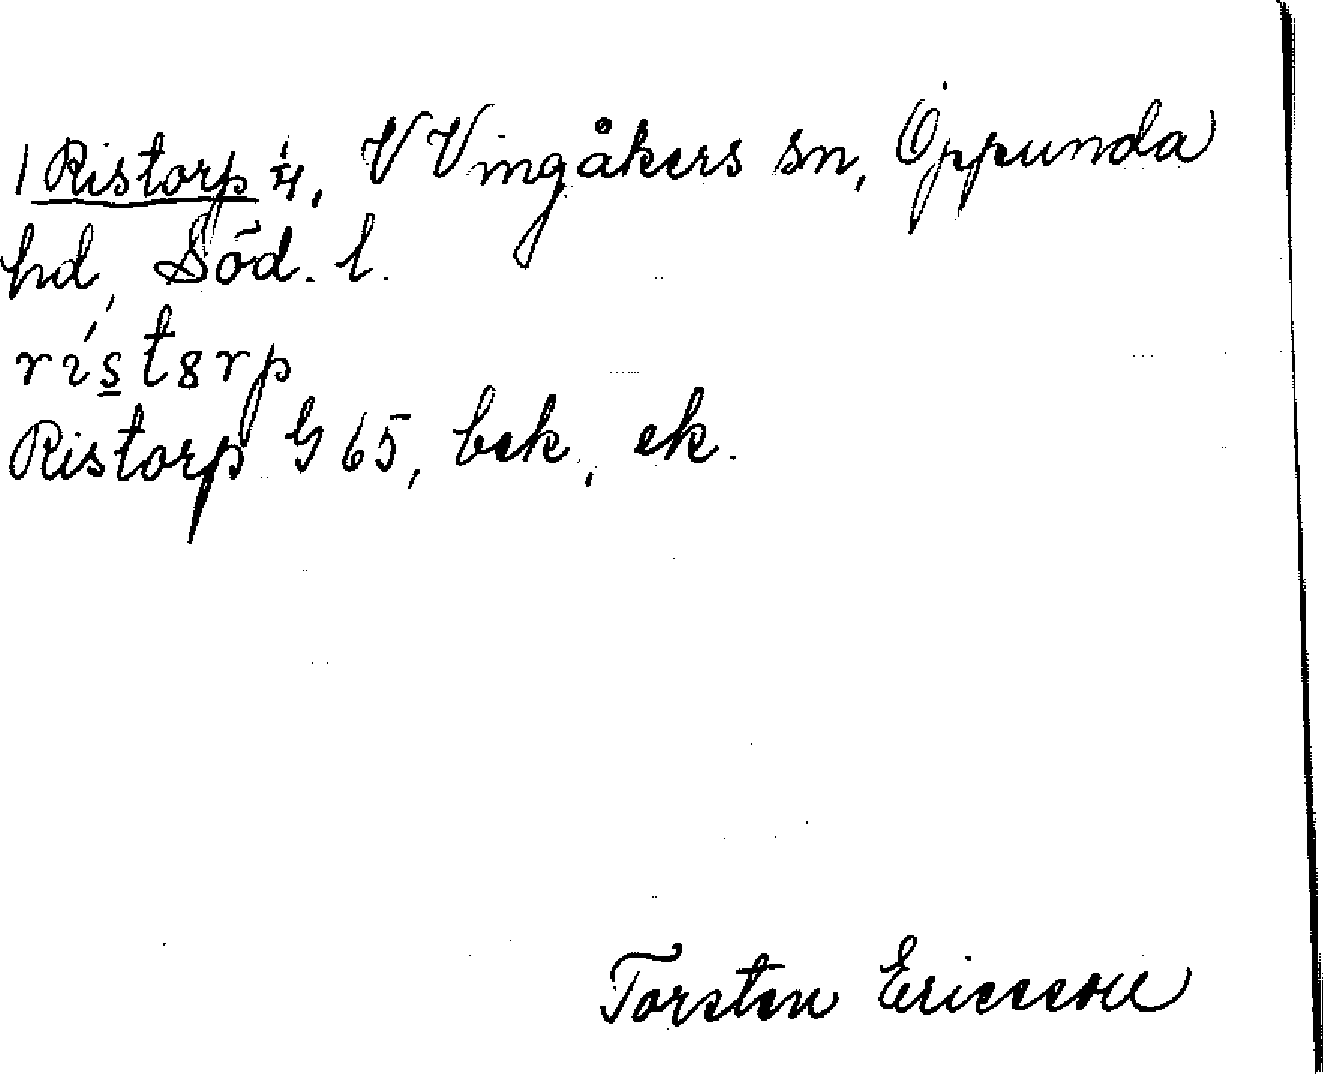 1 Ristorp ¼, V Vingåkers sn, Oppunda
hd, Söd. l.
rís̲t8rp
Ristorp G 65, bek, ek.
Torsten Ericsson